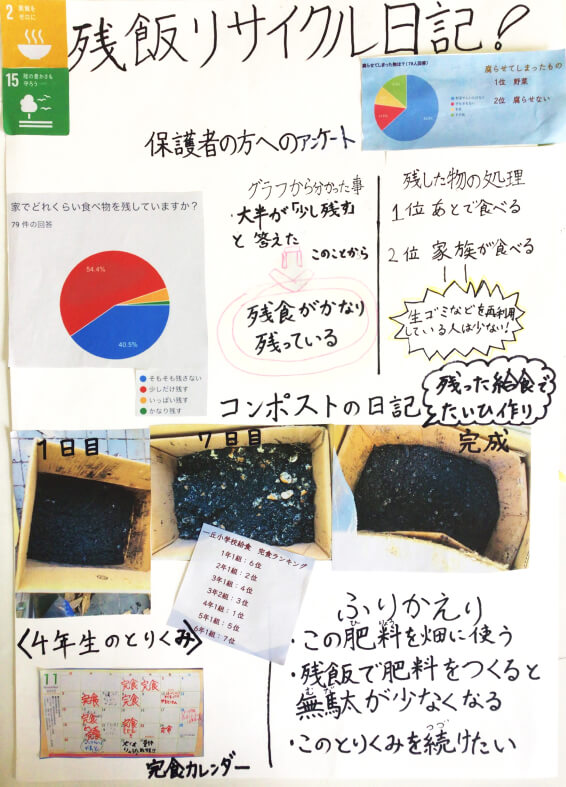 2 飢餓を
ゼロに
15 陸の豊かさも
守ろう
残飯リサイクル日記!
腐らせてしまった物は?(79人回答)
腐らせてしまったもの
1位 野菜
2位 腐らせない
保護者の方へのアンケート
家でどれくらい食べ物を残していますか?
79 件の回答
54.4%
40.5%
そもそも残さない
少しだけ残す
いっぱい残す
かなり残す
グラフから分かった事
・大半が「少し残す」
と答えた
このことから
残食がかなり
残っている
残した物の処理
1位 あとで食べる
2位 家族が食べる
生ゴミなどを再利用
している人は少ない!
コンポストの日記
残った給食で
たいひ作り
1日目
7日目
完成
一丘小学校給食 完食ランキング
1年1組:6位
2年1組:2位
3年1組:4位
3年2組:3位
4年1組:1位
5年1組:5位
6年1組:7位
〈4年生のとりくみ〉
11
完食 完食 完食
完食
完食
完食カレンダー
ふりかえり
・この肥料を畑に使う
・残飯で肥料をつくると
無駄が少なくなる
・このとりくみを続けたい